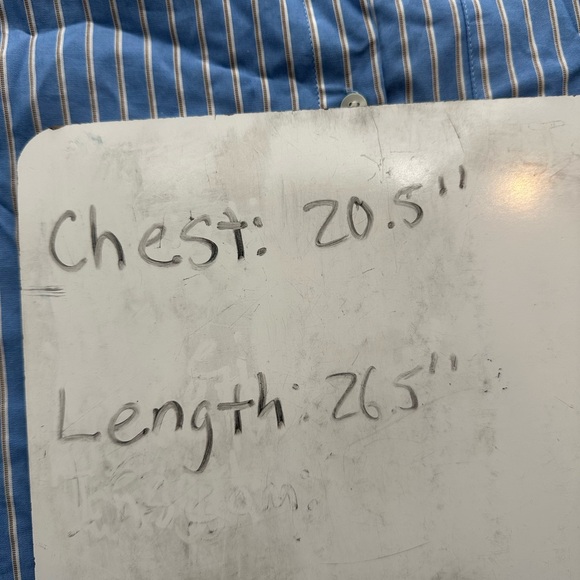 Chest: 20.5"
Length: 26.5"